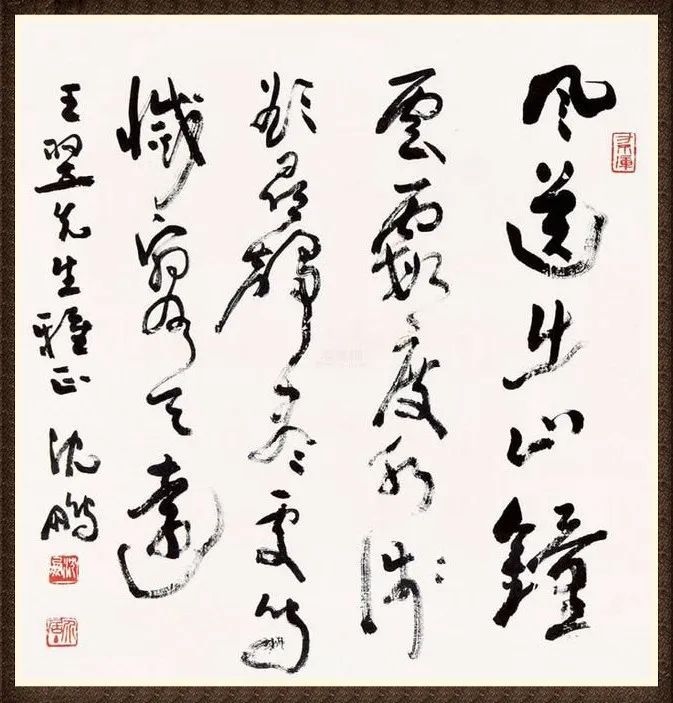 風送出山鐘
雲霞度水淺
欲尋聲盡處鳥
滅寥天遠
王翌先生雅正 沈鵬